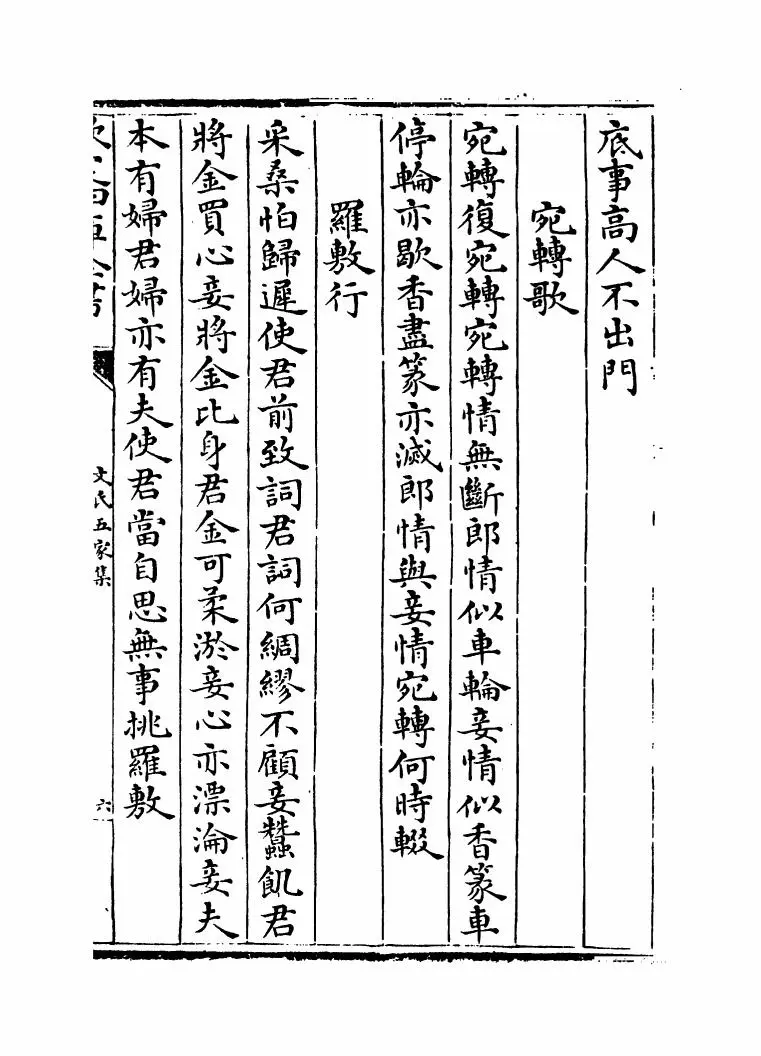 底事高人不出門
宛轉歌
宛轉復宛轉宛轉情無斷郎情似車輪妾情似香篆車
停輪亦歇香盡篆亦滅郎情與妾情宛轉何時輟
羅敷行
采桑怕歸遲使君前致詞君詞何綢繆不顧妾蠶飢君
將金買心妾將金比身君金可柔淤妾心亦漂淪妾夫
本有婦君婦亦有夫使君當自思無事挑羅敷
文氏五家集
六